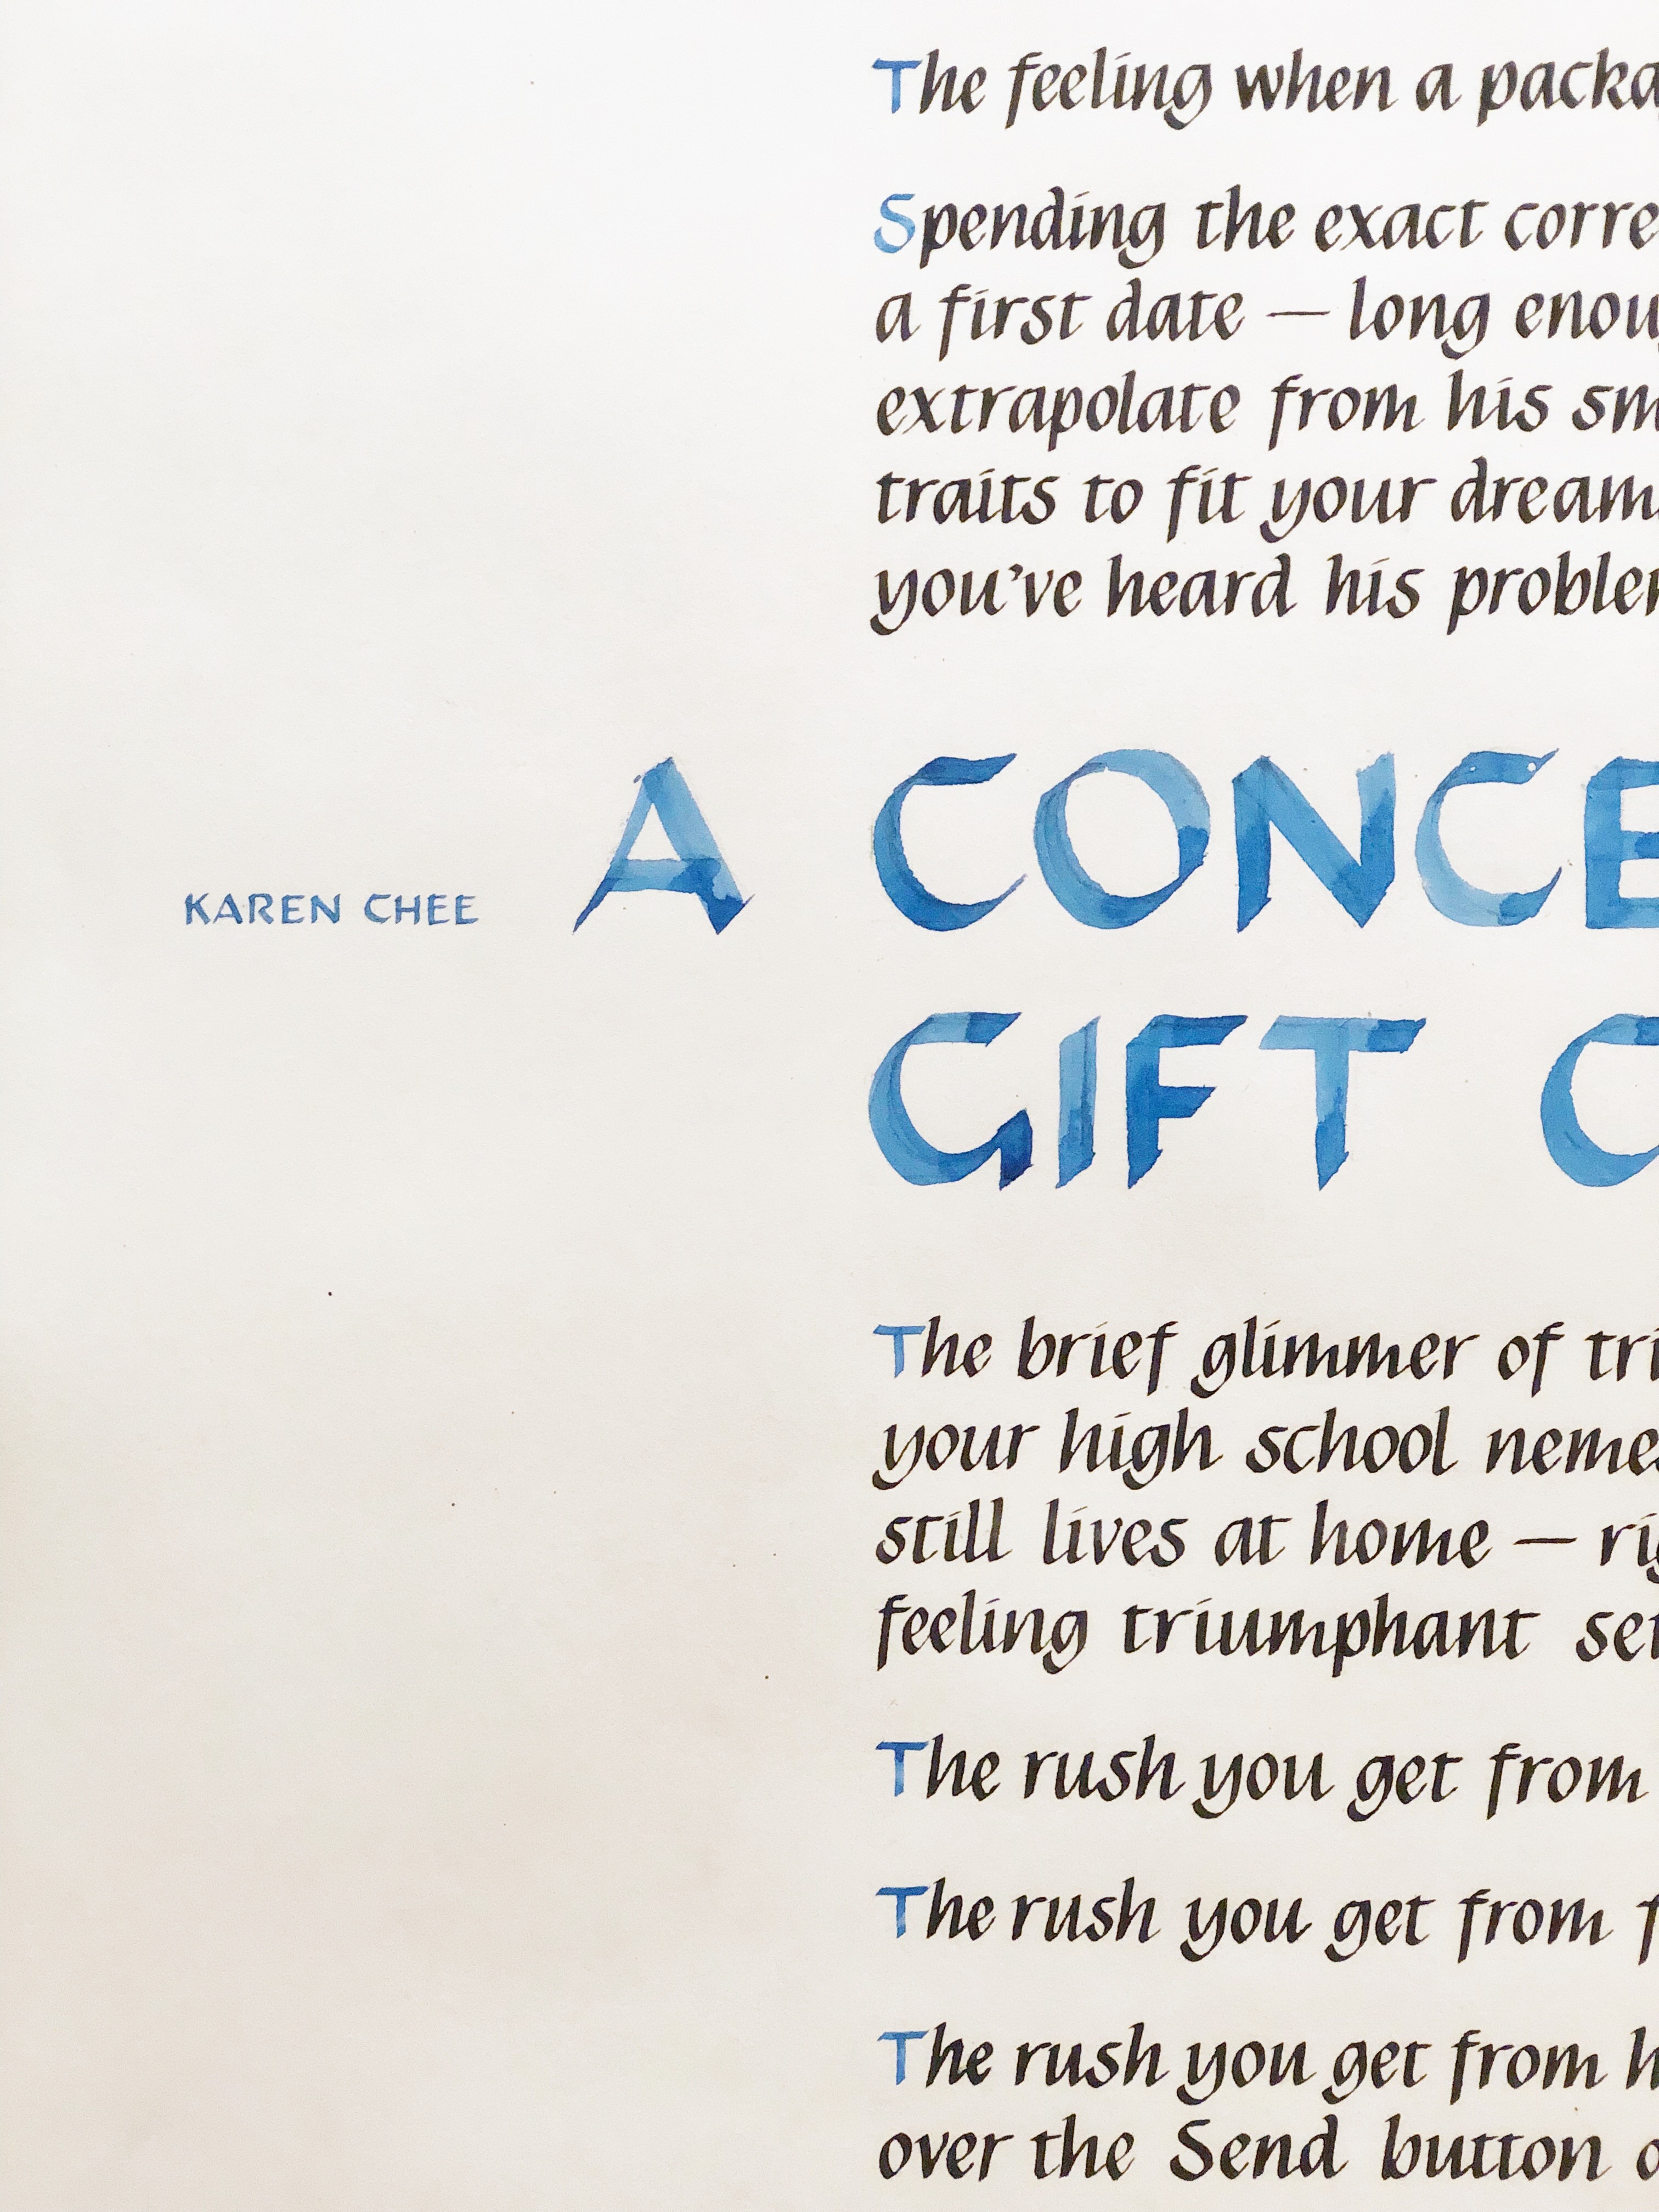 The feeling when a packa
Spending the exact corre
a first date — long enoug
extrapolate from his sm
traits to fit your dream
you've heard his problem
KAREN CHEE A CONCE
GIFT C
The brief glimmer of tri
your high school nemes
still lives at home — rig
feeling triumphant sen
The rush you get from
The rush you get from f
The rush you get from h
over the Send button o